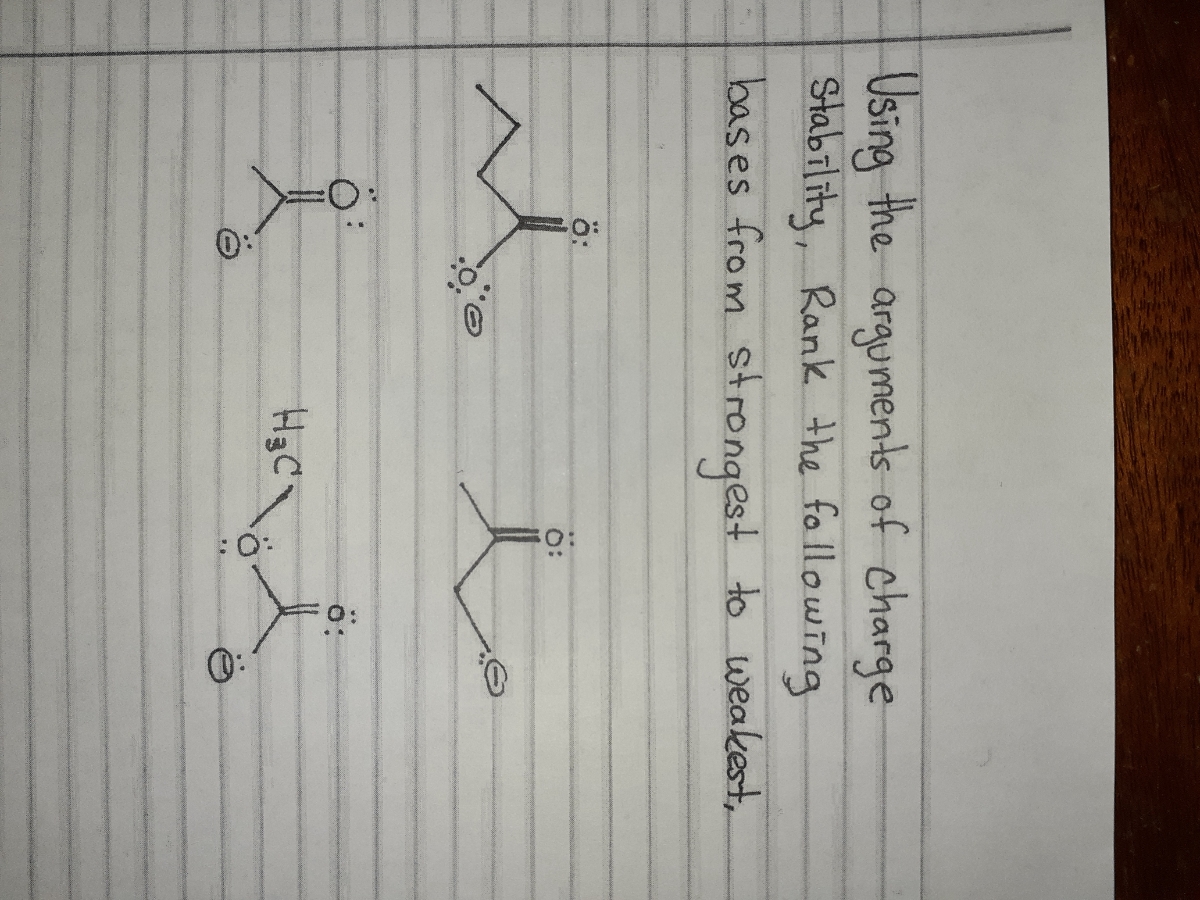 Using the arguments of charge
stability, Rank the following
bases from strongest to weakest,
O
O ⊖
O
⊖
O
⊖
H₃C
O
O
⊖